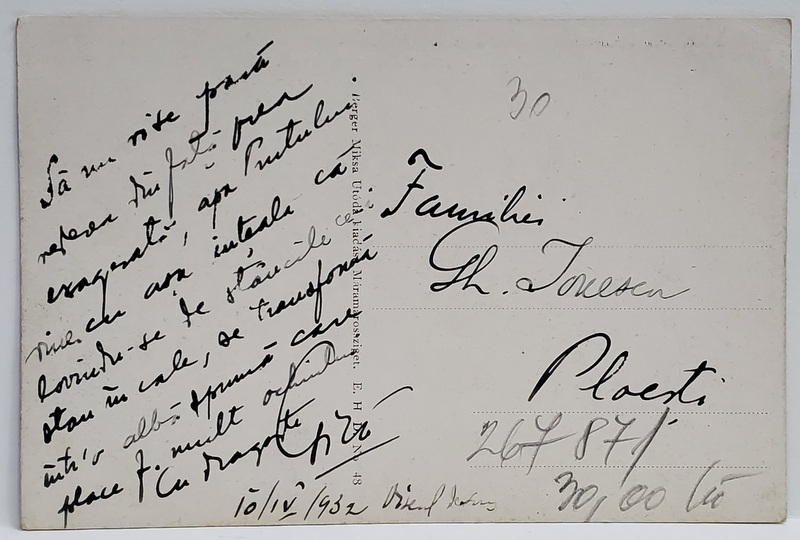 Să nu vise pară
din față prea
exagerată, apa Prutului
vine cu așa iuțeală că
lovindu-se de stâncile ce-i
stau în cale, se transformă
într'o albă spumă care
place f. mult ochiului
Cu dragoste
10/IV/932
Berger Miksa Utóda kiadása, Máramarossziget. E. H. D. No 48
30
Familiei
Gh. Ionescu
Ploești
267871
30,00 lei